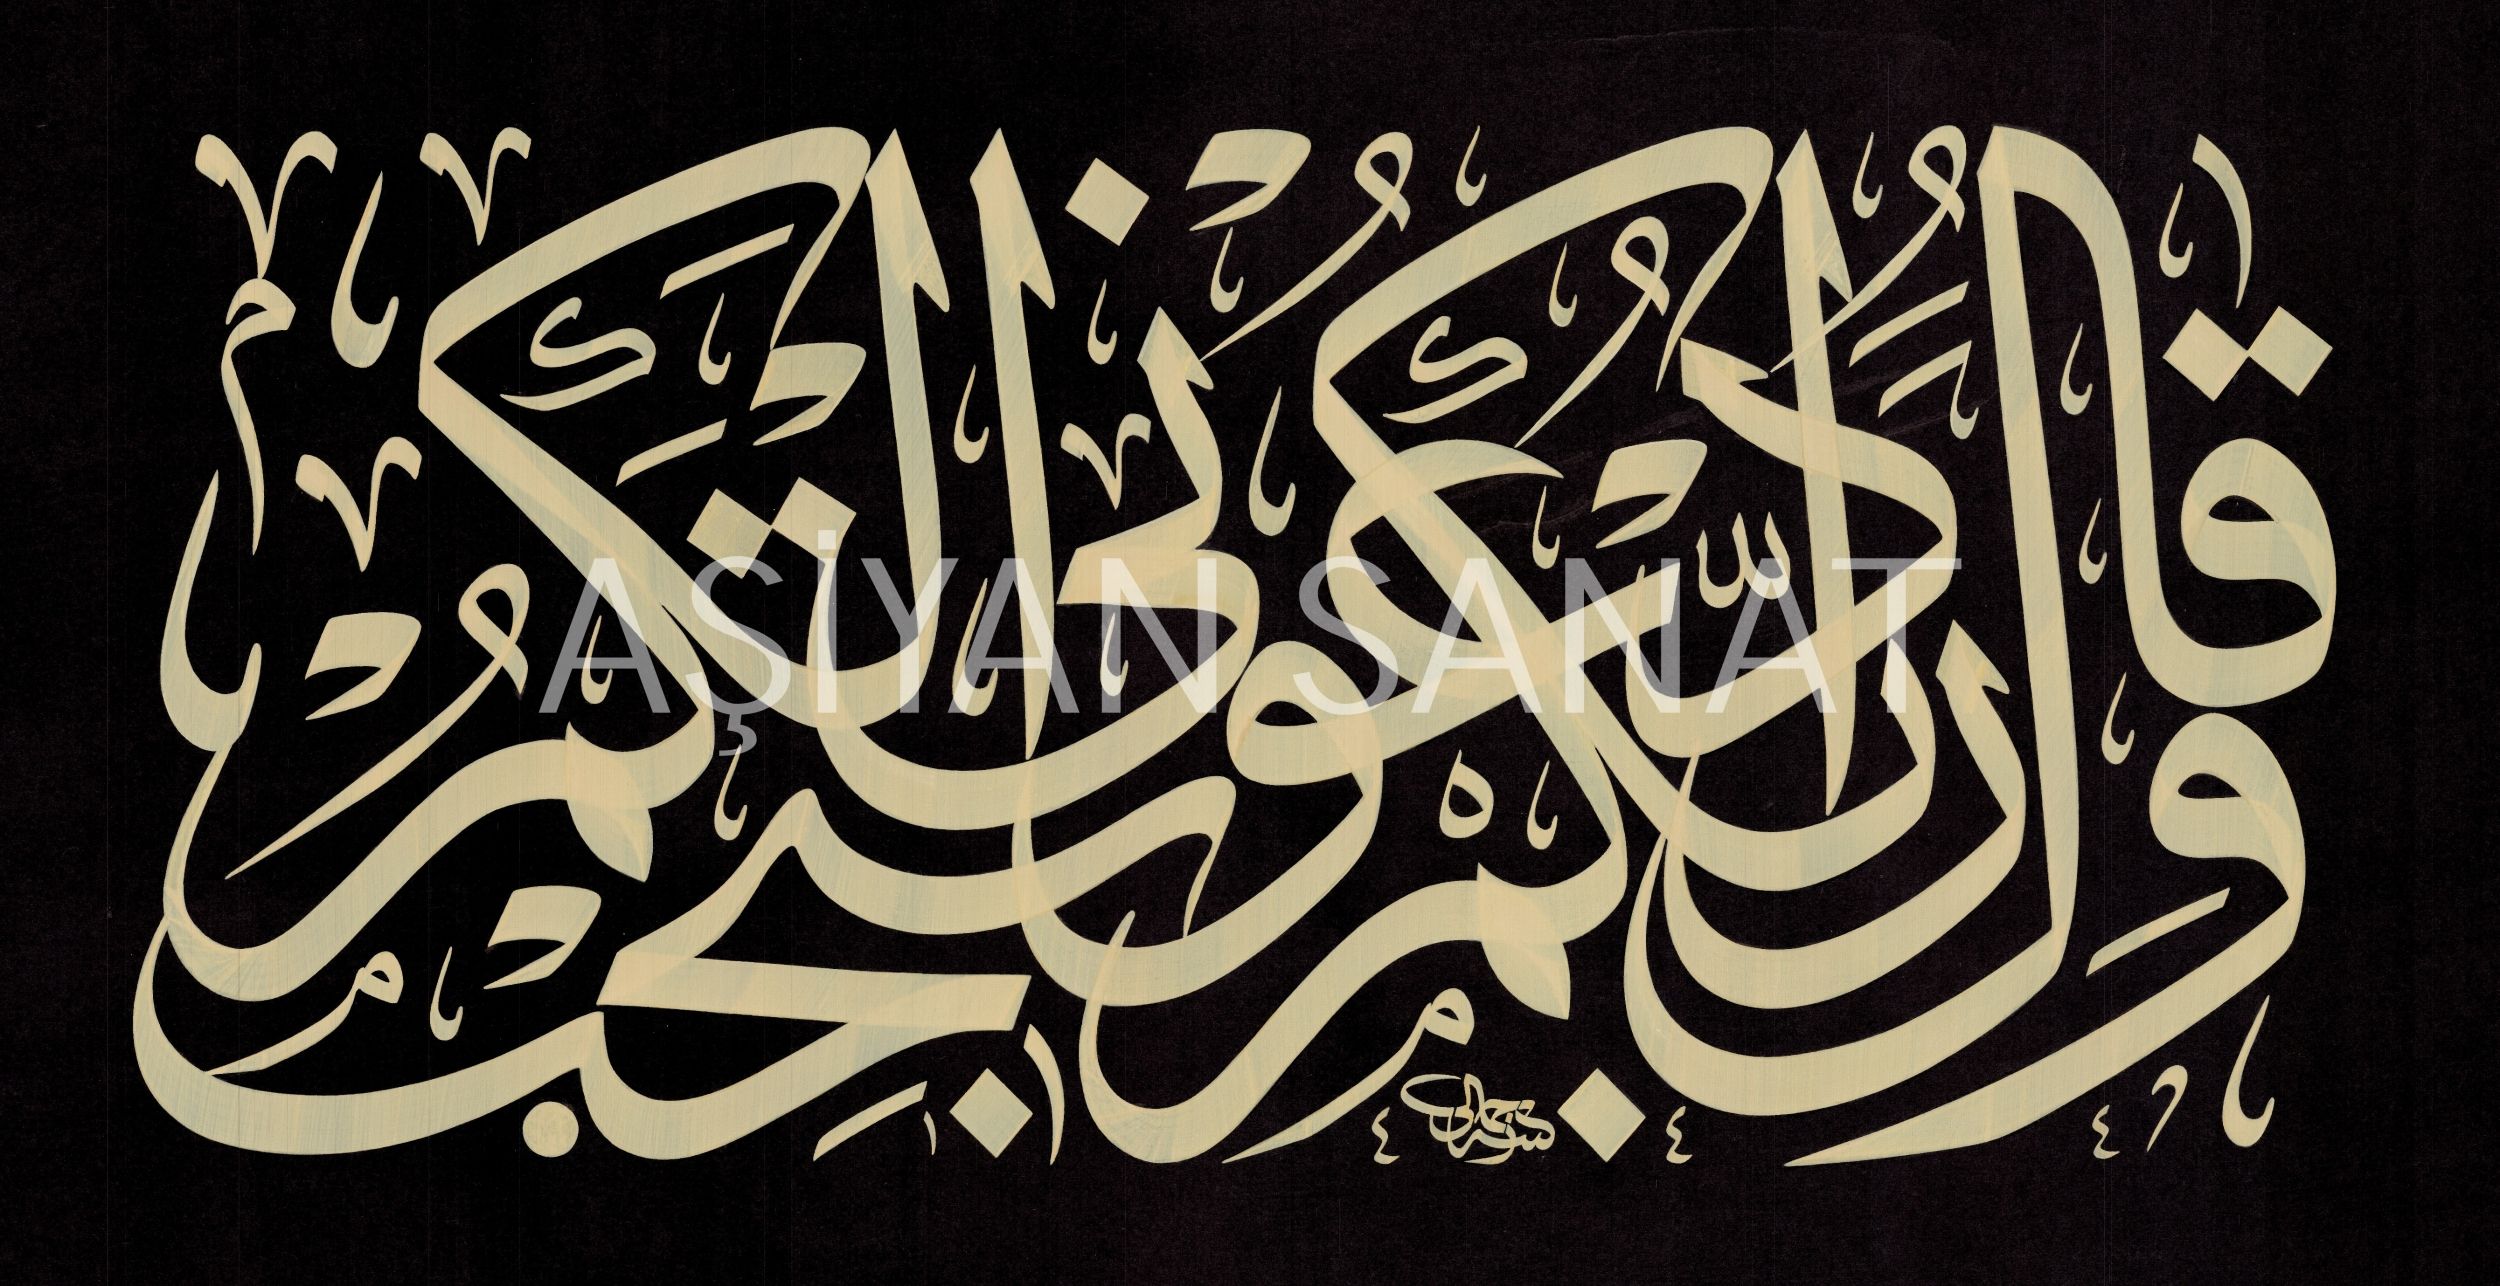 وَقَالَ رَبُّكُمُ ادْعُونِي أَسْتَجِبْ لَكُمْ
AŞİYAN SANAT